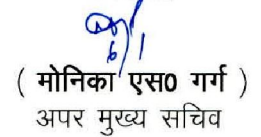 6/1
( मोनिका एस0 गर्ग )
अपर मुख्य सचिव